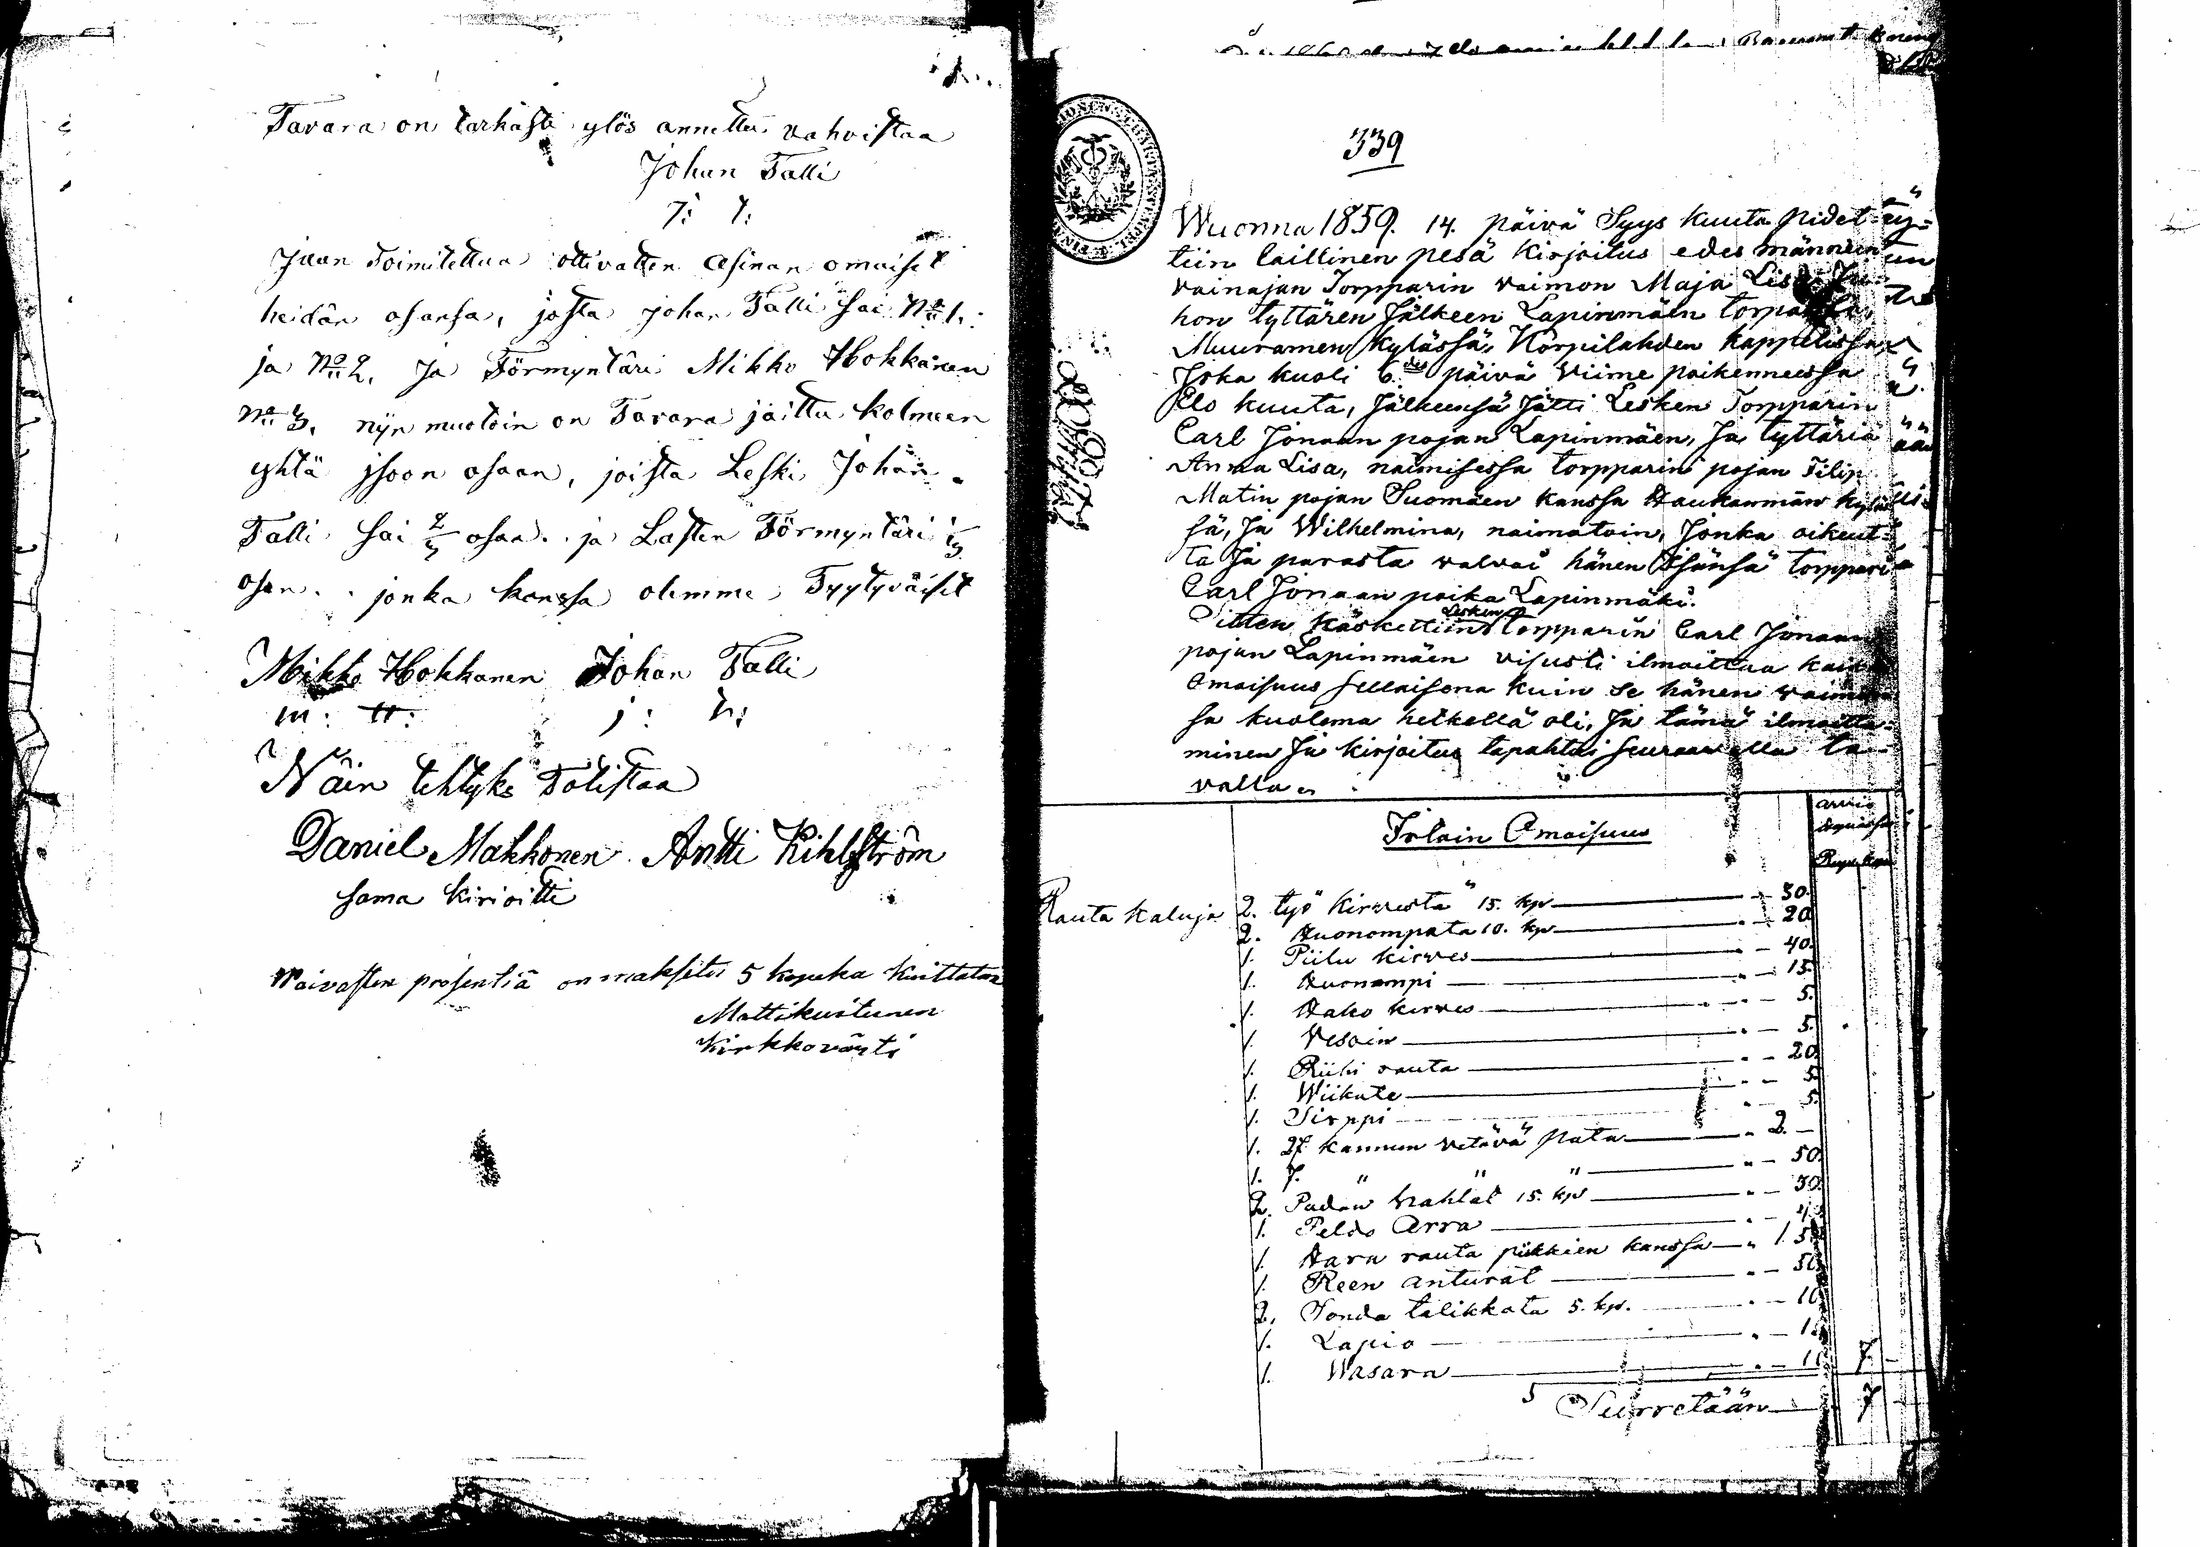 Tavara on tarkasti ylös annettu vahvistaa
Johan Talli
J: T:
Jaan toimitettua ottivatten asinan omaiset
heidän osansa, josta Johan Talli sai No 1.
ja No 2. Ja Förmyntäri Mikko Hokkanen
No 3. nijn muotoin on Tavara jaittu kolmeen
yhtä jsoon osaan, joista Leski Johan
Talli sai 2/3 osaa. ja Lasten Förmyntäri 1/3
osan. jonka kanssa olemme Tyytyväiset
Mikko Hokkanen Johan Talli
m: H: j: T:
Näin tehtyks Todistaa
Daniel Makkonen Antti Kihlström
sama kirjoitti
Waivasten prosentiä on maksettu 5 kopeka kvittataan
Matti kuitunen
Kirkkovärti
339
Wuonna 1859. 14. päivä Syys kuuta pidet-
tiin laillinen pesä Kirjoitus edes männeen
vainajan Torpparin vaimon Maja Lisa Ju-
hon tyttären Jälkeen Lapinmäen torpassa,
Muuramen kylässä, Korpilahden kappelissa,
Joka kuoli 6. päivä viime poikenneessa
Elo kuuta, Jälkeensä Jätti Lesken Torpparin
Carl Jonaan pojan Lapinmäen, Ja tyttäriä
Anna Lisa, naimisessa torpparin pojan Filip
Matin pojan Suomäen kanssa Haukanmäen kyläs-
sä, Ja Wilhelmina, naimatoin, Jonka oikeut-
ta Ja parasta valvoi hänen Isänsä torppari
Carl Jonaan poika Lapinmäki.
Sitten käskettiin Lesken torpparin Carl Jonaan
pojan Lapinmäen visusti ilmoittaa kaikki
Omaisuus sellaisena kuin se hänen vaimon-
sa kuolema hetkellä oli, Ja tämä ilmoitta-
minen Ja kirjoitus tapahtui seuraavalla ta-
valla.
Irtain Omaisuus
arvio
Rup. kop.
Rauta kaluja 2. työ kirvestä 15. kp - 30.
2. Huonompata 10. kp - 20
1. Piilu kirves - 40.
1. Huonompi - 15.
1. Hako kirves - 5.
1. Vesoin - 5.
1. Riihi rauta - 20.
1. Wiikate - 5.
1. Sirppi - 5.
1. 27 kannun vetävä pata 2. -
1. 7. " " " - 50.
2. Padan vahlat 15. kp - 30.
1. Peldo Arra
1. Hara rauta piikkien kanssa
1. Reen anturat
2. Sonda talikkota 5. kp. - 10
1. Lapio
1. Wasara 7. -
Siirretään 7